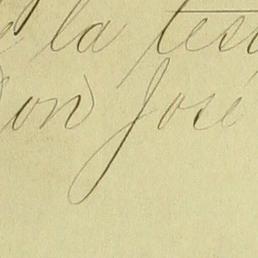 la tes
Don José